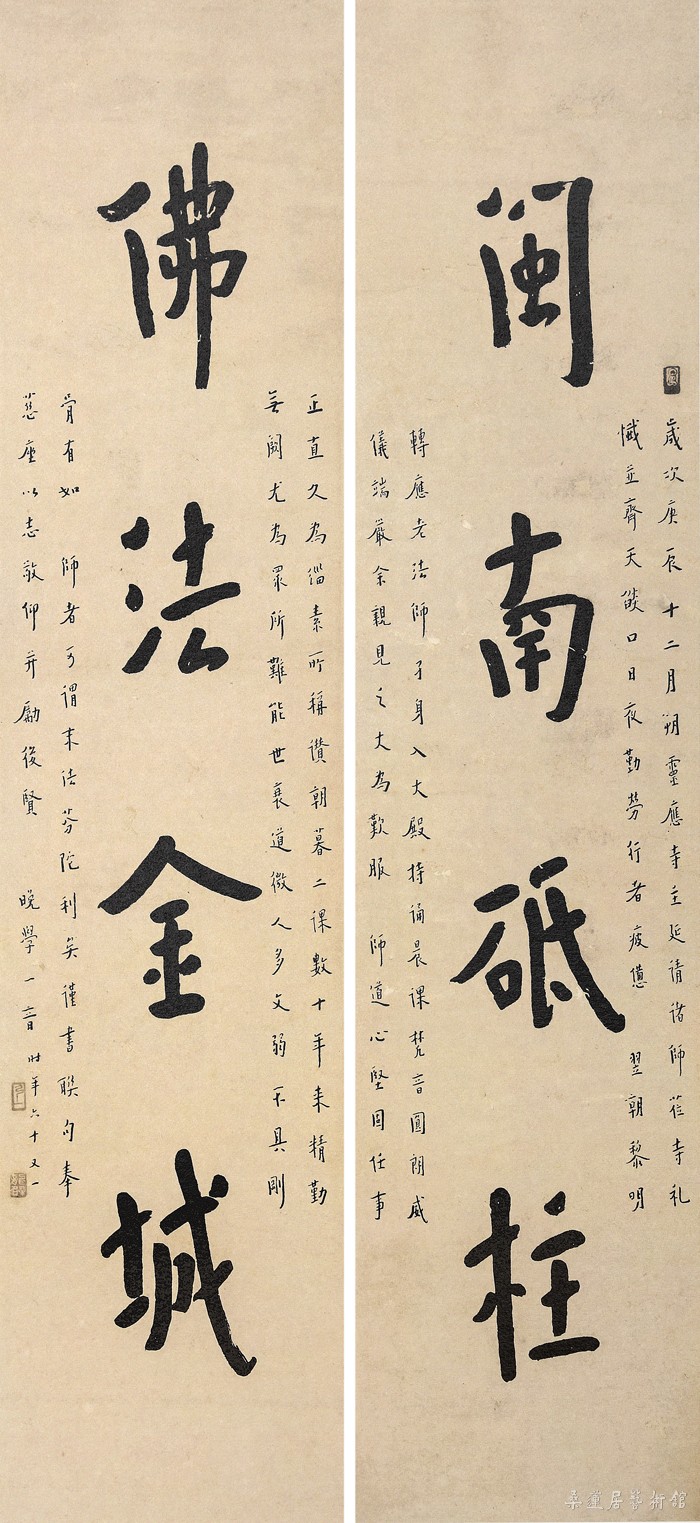 閩南砥柱
歲次庚辰十二月朔靈應寺主延請諸師蒞寺礼
懺並齊天燄口日夜勤勞行者疲憊 翌朝黎明
轉應老法師孑身入大殿持誦晨課梵音圓朗威
儀端嚴余親見之大為歎服 師道心堅固任事
佛法金城
正直久為緇素所稱讚朝暮二課數十年来精勤
無闕尤為眾所難能世衰道微人多文弱不具剛
骨有如 師者可謂末法芬陀利矣謹書聯句奉
慈座以志敬仰并勵後賢 晚學一音時年六十又一
桑蓮居藝術館